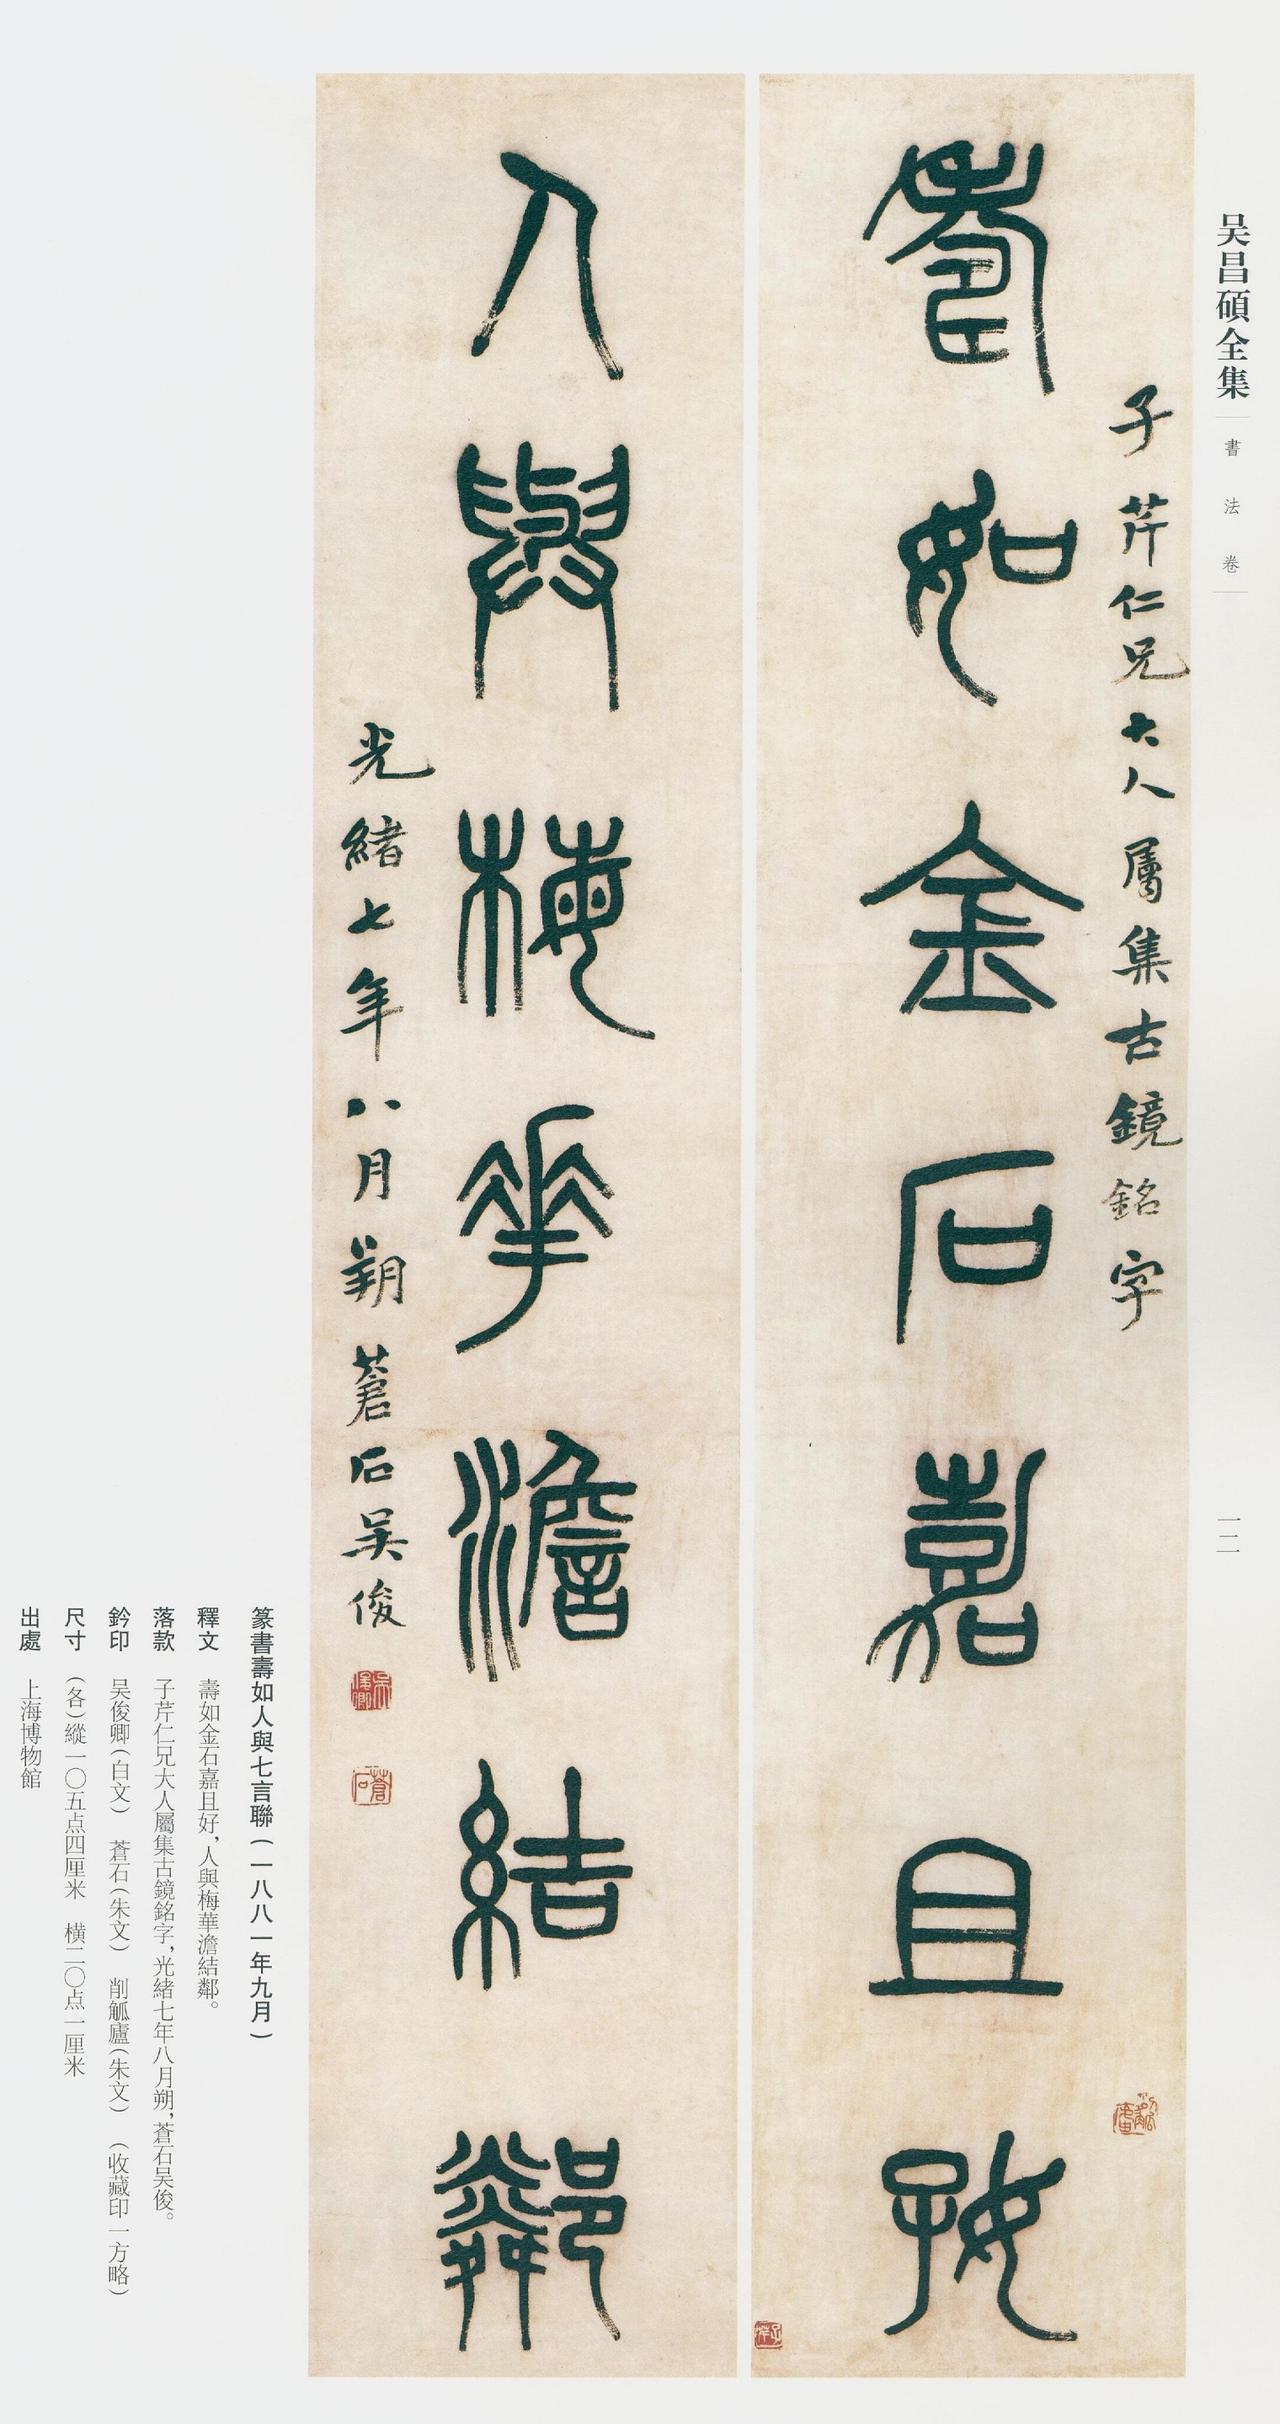 吴昌碩全集
書法卷
一二
子芹仁兄大人屬集古鏡銘字
壽如金石嘉且好
人與梅華澹結鄰
光緒七年八月朔蒼石吴俊
吴俊卿
蒼石
削觚廬
子芹
篆書壽如人與七言聯（一八八一年九月）
釋文　壽如金石嘉且好，人與梅華澹結鄰。
落款　子芹仁兄大人屬集古鏡銘字，光緒七年八月朔，蒼石吴俊。
鈐印　吴俊卿（白文）　蒼石（朱文）　削觚廬（朱文）　（收藏印一方略）
尺寸　（各）縱一〇五点四厘米　橫二〇点一厘米
出處　上海博物館